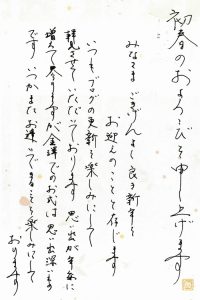 初春のおよろこびを申し上げます
みなさま ごきげんよく良き新年を
お迎えのことと存じます
いつもブログの更新を楽しみにして
拝見させていただいております 思い出が年毎に
増えて参りますが、金澤でのお式は思い出深いもの
です いつかまたお逢いできることを楽しみにして
おります